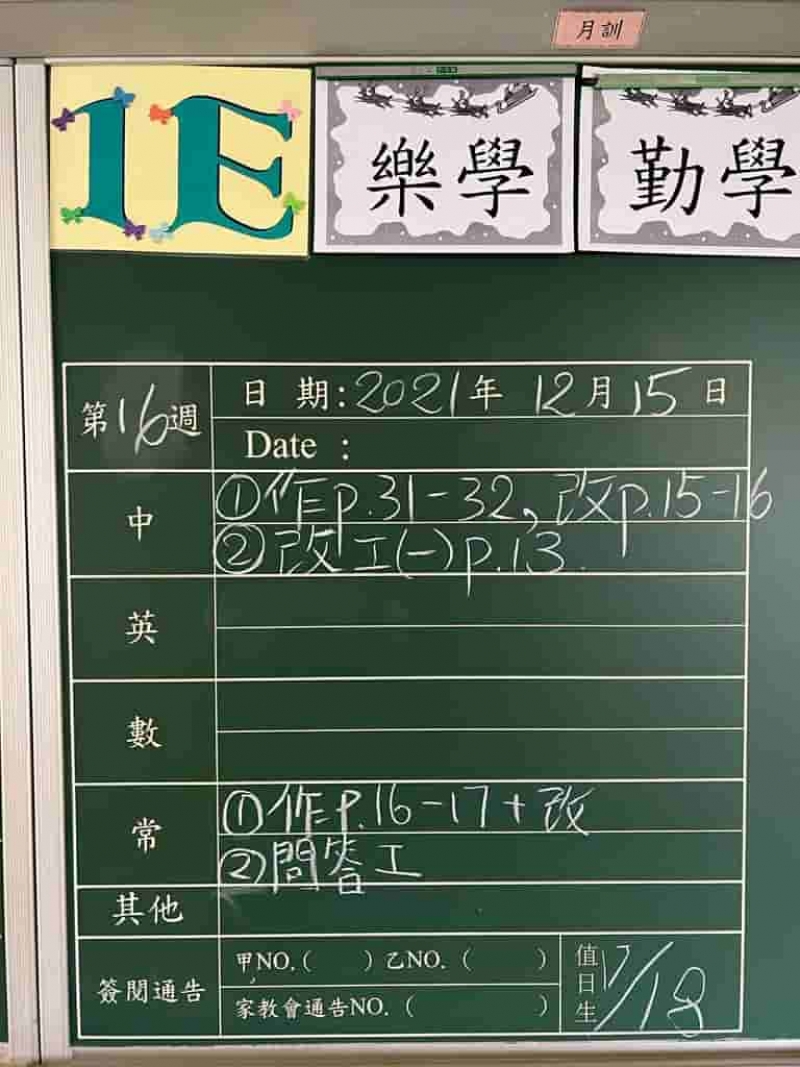 月訓
1E
樂學
勤學
第16週
日 期:2021年 12月15日
Date :
中
①作p.31-32,改p.15-16
②改工(一)p.13.
英
數
常
①作p.16-17+改
②問答工
其他
簽閱通告
甲NO.( ) 乙NO. ( )
家教會通告NO. ( )
值日生
17/18